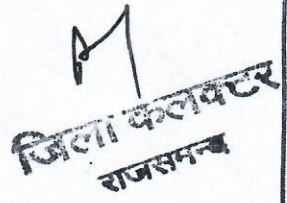 जिला कलक्टर
राजसमन्द